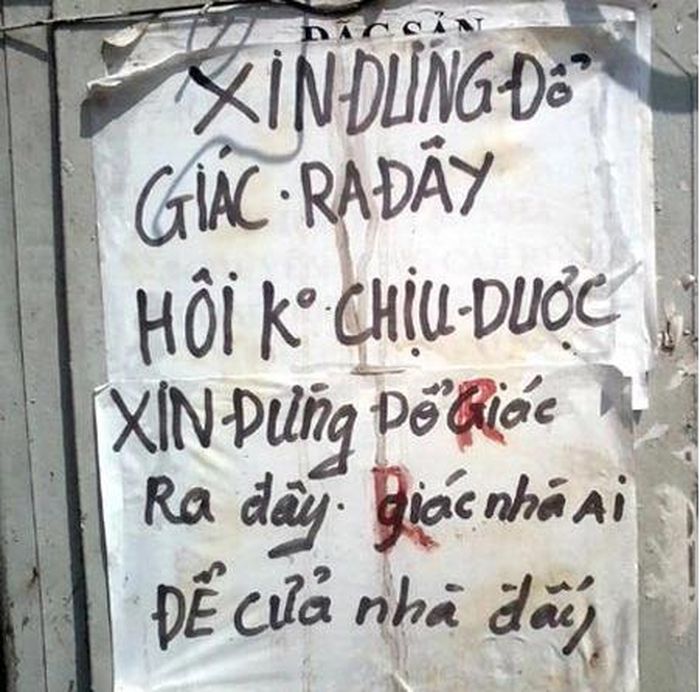 ĐẶC SẢN
XIN ĐỪNG ĐỔ
GIÁC · RA ĐÂY
HÔI Kº CHỊU ĐƯỢC
XIN ĐỪNG ĐỔ Giác
Ra đây. giác nhà Ai
ĐỂ CỬA nhà đấy